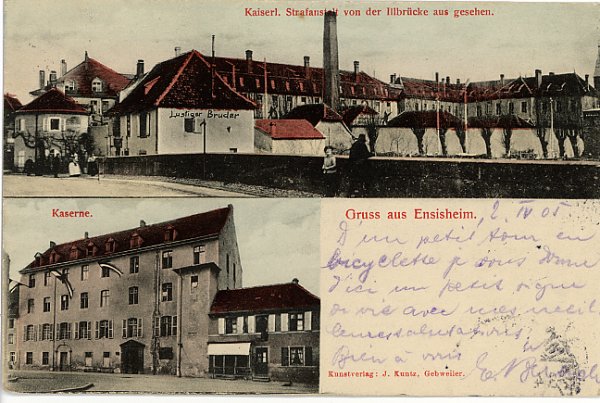 Kaiserl. Strafanstalt von der Illbrücke aus gesehen.
Lustiger Bruder
Kaserne.
Gruss aus Ensisheim.
2 IV 05
D'un petit tour en
bicyclette je vous donne
d'ici un petit signe
de vie avec mes meill
leures salutations
Bien à vous
Kunstverlag: J. Kuntz, Gebweiler.